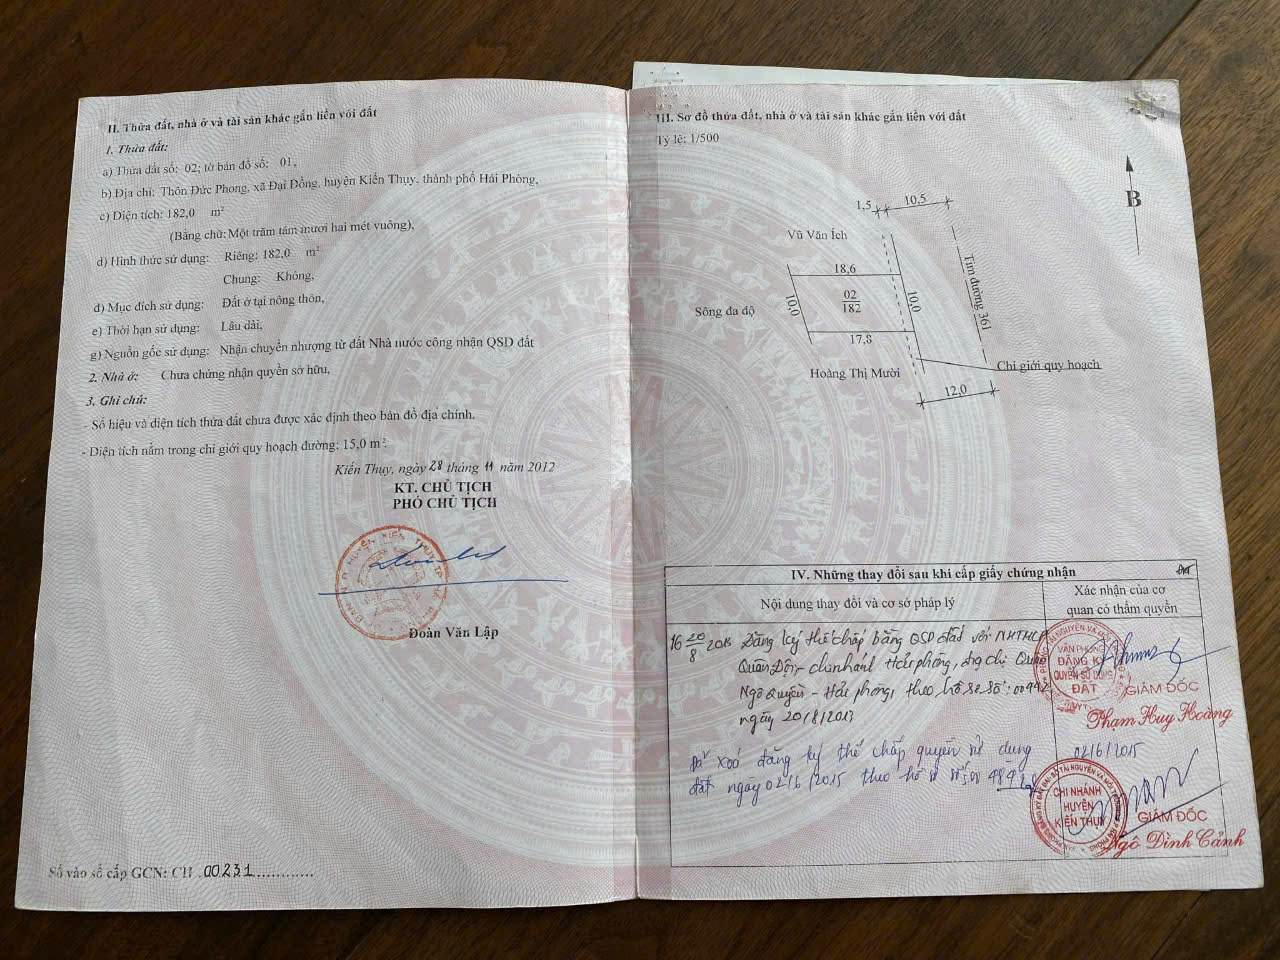 II. Thửa đất, nhà ở và tài sản khác gắn liền với đất
1. Thửa đất:
a) Thửa đất số: 02; tờ bản đồ số: 01,
b) Địa chỉ: Thôn Đức Phong, xã Đại Đồng, huyện Kiến Thụy, thành phố Hải Phòng,
c) Diện tích: 182,0 m²
(Bằng chữ: Một trăm tám mươi hai mét vuông),
d) Hình thức sử dụng: Riêng: 182,0 m²
Chung: Không,
đ) Mục đích sử dụng: Đất ở tại nông thôn,
e) Thời hạn sử dụng: Lâu dài,
g) Nguồn gốc sử dụng: Nhận chuyển nhượng từ đất Nhà nước công nhận QSD đất
2. Nhà ở: Chưa chứng nhận quyền sở hữu,
3. Ghi chú:
- Số hiệu và diện tích thửa đất chưa được xác định theo bản đồ địa chính.
- Diện tích nằm trong chỉ giới quy hoạch đường: 15,0 m².
Kiến Thụy, ngày 28 tháng 11 năm 2012
KT. CHỦ TỊCH
PHÓ CHỦ TỊCH
Đoàn Văn Lập
Số vào sổ cấp GCN: CH 00231
III. Sơ đồ thửa đất, nhà ở và tài sản khác gắn liền với đất
Tỷ lệ: 1/500
B
1,5
10,5
Vũ Văn Ích
18,6
Tim đường 361
10,0
02
182
10,0
Sông đa độ
17,8
Hoàng Thị Mười
Chỉ giới quy hoạch
12,0
IV. Những thay đổi sau khi cấp giấy chứng nhận
Nội dung thay đổi và cơ sở pháp lý
Xác nhận của cơ
quan có thẩm quyền
Đăng ký thế chấp bằng QSD đất với NHTMCP
Quân Đội - chi nhánh Hải phòng, địa chỉ Quận
Ngô Quyền - Hải phòng, theo hồ sơ số: 00942
ngày 20/8/2013
VĂN PHÒNG
ĐĂNG KÝ
QUYỀN SỬ DỤNG
ĐẤT
GIÁM ĐỐC
Phạm Huy Hoàng
Đã xoá đăng ký thế chấp quyền sử dụng
đất ngày 02/6/2015 theo hồ sơ số:
02/6/2015
CHI NHÁNH
HUYỆN
KIẾN THỤY
GIÁM ĐỐC
Ngô Đình Cảnh